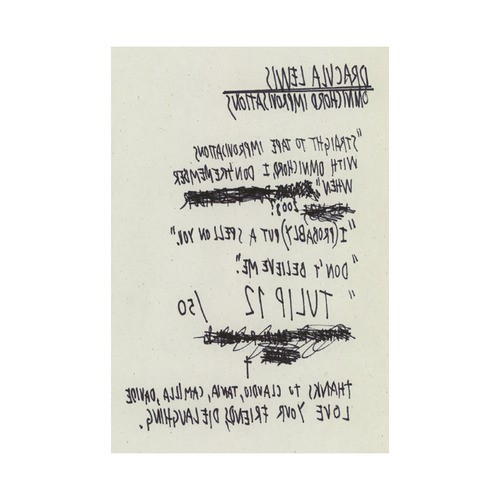 DRACULA LEWIS
OMNICHORD IMPROVISATIONS
"STRAIGHT TO TAPE IMPROVISATIONS
WITH OMNICHORD I DON'T REMEMBER
WHEN"
2008?
"I (PROBABLY) PUT A SPELL ON YOU"
"DON'T BELIEVE ME".
" TULIP 12 /50
THANKS TO CLAUDIO, TANIA, CAMILLA, DAVIDE
LOVE YOUR FRIENDS, DIE LAUGHING.